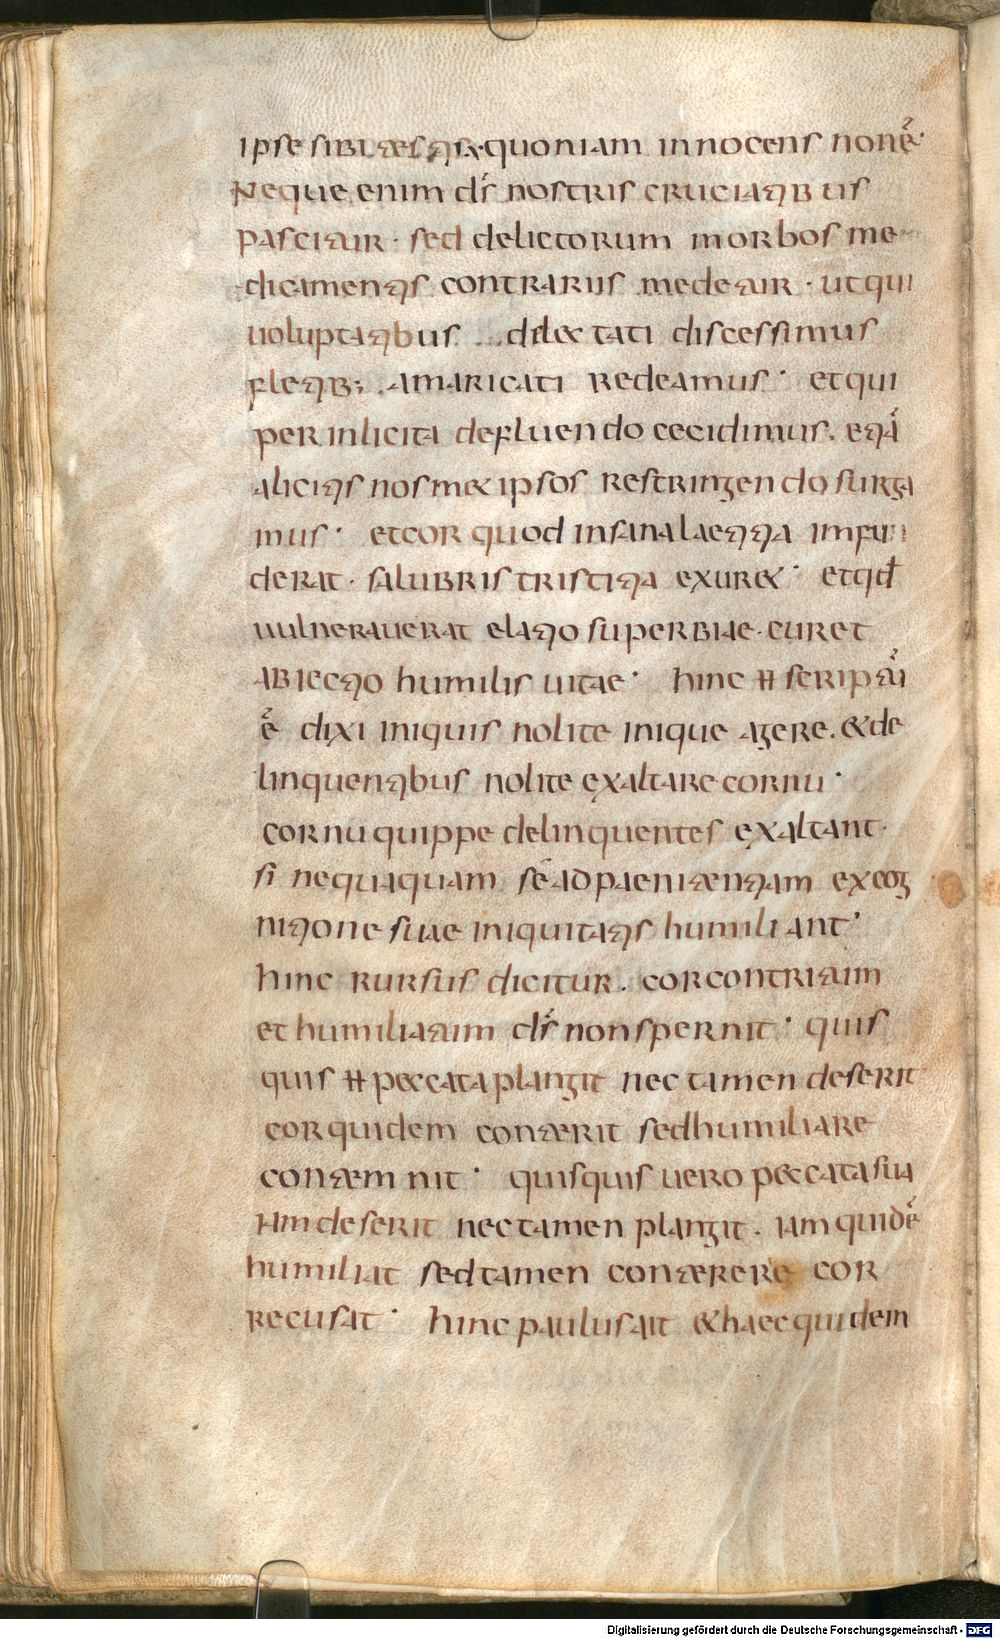 ipse sibi testis est quoniam innocens non ē·
Neque enim dſ nostris cruciatibus
pascitur · sed delictorum morbos me
dicamentis contrariis medetur · ut qui
uoluptatibus dilectati discessimus
fletib; amaricati redeamus · et qui
per inlicita defluendo cecidimus. etiā
a licitis nosmet ipsos restringendo surga
mus · et cor quod insana laetitia infu
derat · salubris tristitia exuret · et qđ
uulnerauerat elatio superbiae · curet
abiectio humilis uitae · hinc ħ scriptū
ē dixi iniquis nolite inique agere. et de
linquentibus nolite exaltare cornu ·
cornu quippe delinquentes exaltant ·
si nequaquam sē ad paenitentiam ex cog
nitione suae iniquitatis humiliant ·
hinc rursus dicitur. cor contritum
et humiliatum dſ non spernit · quis
quis ħ peccata plangit nec tamen deserit
cor quidem conterit sed humiliare
contemnit · quisquis uero peccata sua
iam deserit nec tamen plangit. iam quidē
humiliat sed tamen conterere cor
recusat · hinc paulus ait et haec quidem
Digitalisierung gefördert durch die Deutsche Forschungsgemeinschaft - DFG